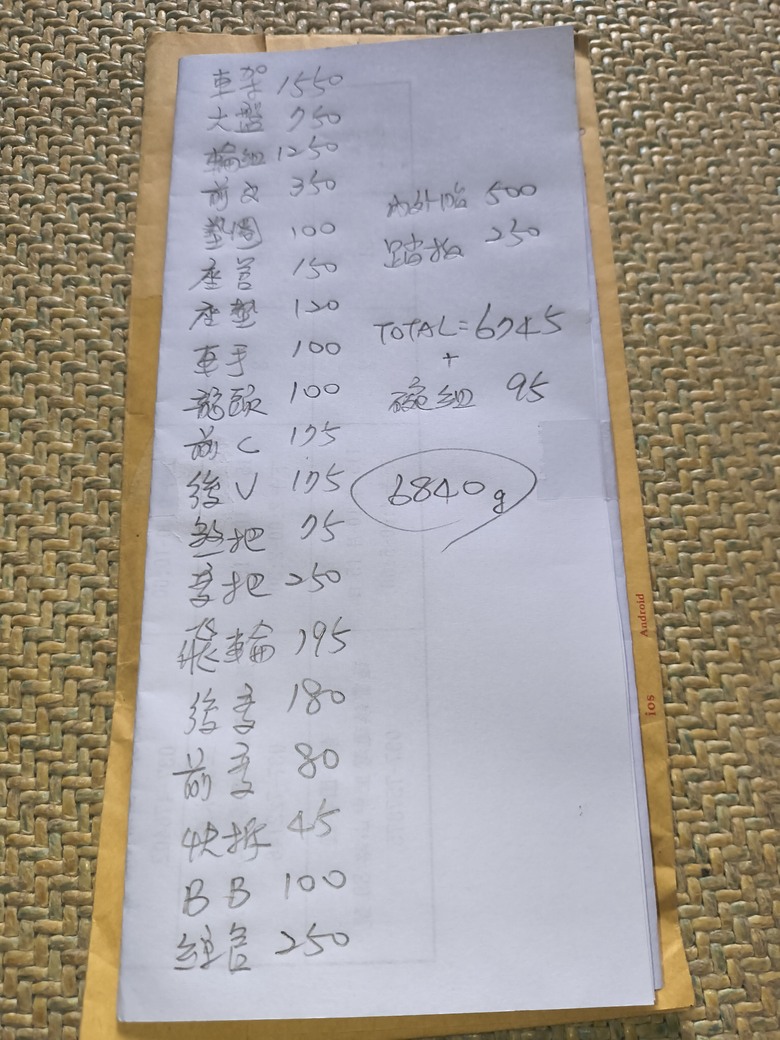 車架 1550
大盤 750
輪組 1250
前叉 350
墊圈 100
座管 150
座墊 120
車手 100
龍頭 100
前C 175
後V 175
煞把 75
变把 250
飛輪 195
後变 180
前变 80
快拆 45
BB 100
線管 250
內外胎 500
踏板 250
TOTAL=6745
+
碗組 95
6840g
Android
ios